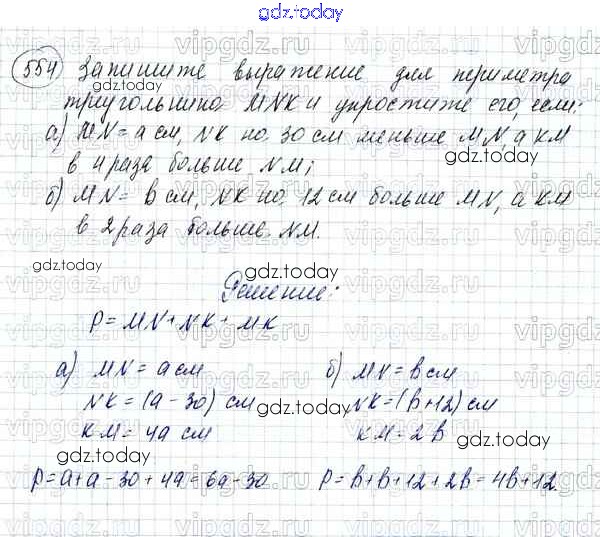 gdz.today
554) Запишите выражение для периметра
треугольника MNK и упростите его, если:
а) MN = a см, NK на 30 см меньше MN, а KM
в 4 раза больше NM;
б) MN = b см, NK на 12 см больше MN, а KM
в 2 раза больше NM.
Решение:
P = MN + NK + MK
а) MN = a см
NK = (a - 30) см
KM = 4a см
P = a + a - 30 + 4a = 6a - 30
б) MN = b см
NK = (b + 12) см
KM = 2b
P = b + b + 12 + 2b = 4b + 12.